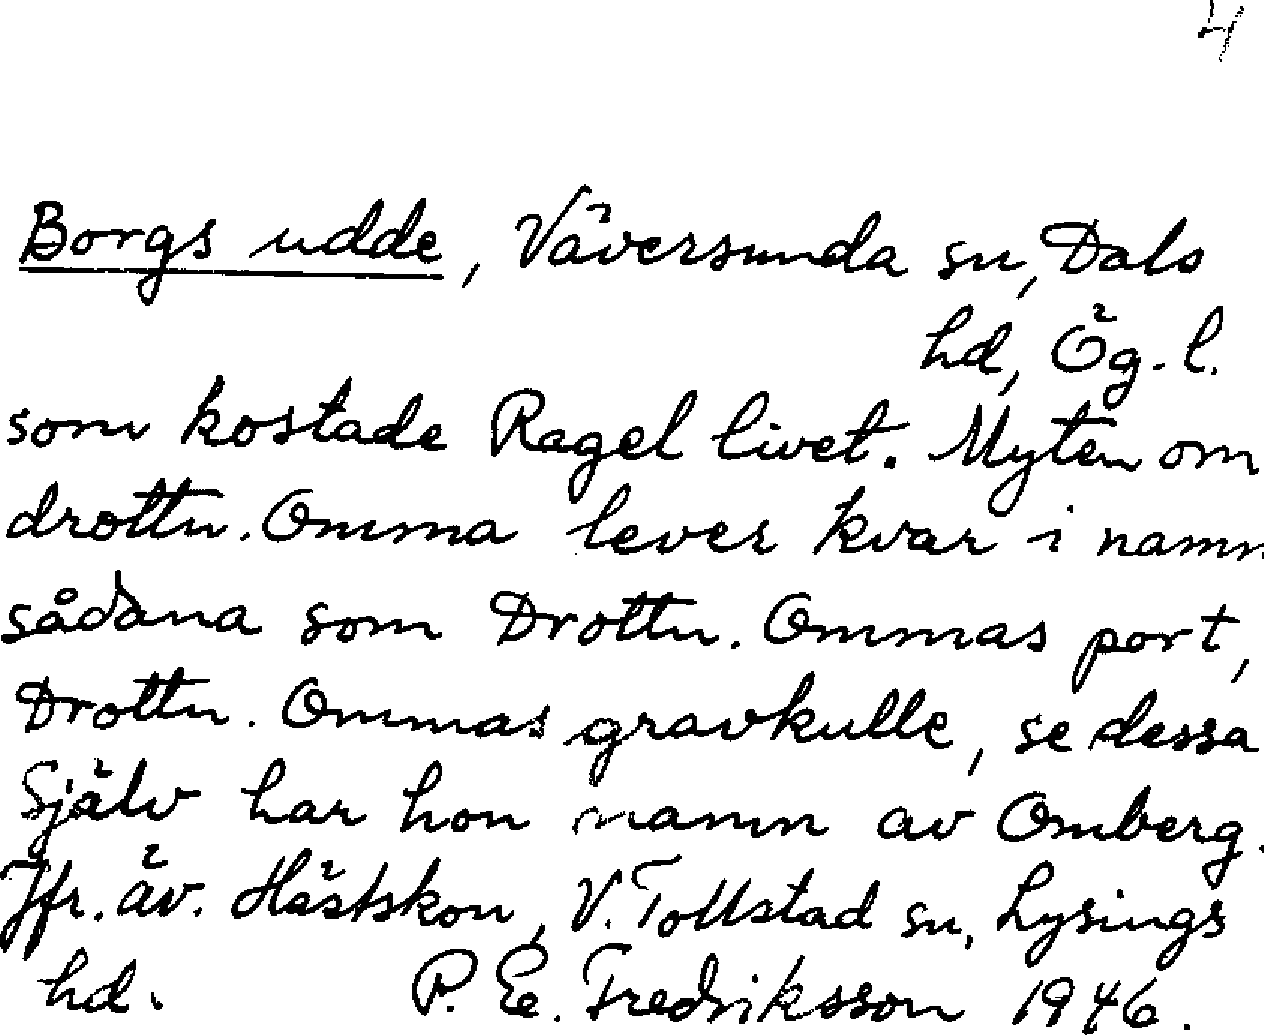 4
Borgs udde, Väversunda sn, Dals
hd, Ög. l.
som kostade Ragel livet. Myten om
drottn. Omma lever kvar i namn
sådana som Drottn. Ommas port,
Drottn. Ommas gravkulle, se dessa
Själv har hon namn av Omberg.
Jfr. äv. Hästskon, V. Tollstad sn, Lysings
hd. P. E. Fredriksson 1946.